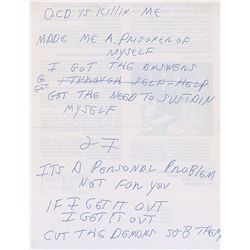 OCD IS KILLIN ME
MADE ME A PRISONER OF
MYSELF
I GOT THE ANSWERS
G I THROUGH SELF-HELP
GST
GOT THE NEED TO SUSTAIN
MYSELF
ITS A PERSONAL PROBLEM
NOT FOR YOU
IF I GET IT OUT
I GET IT OUT
CUT THE DEMONS SO-B THEM